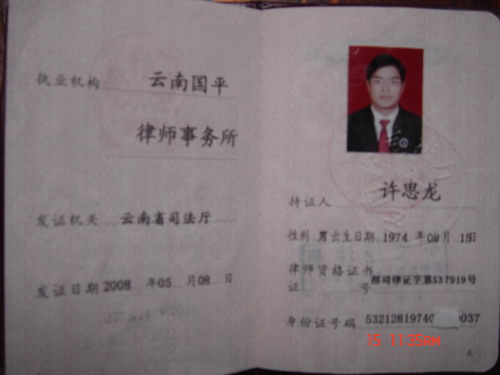 执业机构 云南国平
律师事务所
发证机关 云南省司法厅
发证日期 2008 年 05 月 08 日
持证人 许忠龙
性别 男 出生日期 1974 年 08 月 15 日
律师资格证书
证 号 部司律证字第537919号
身份证号码 53212819740 0037
15 11:35AM
4